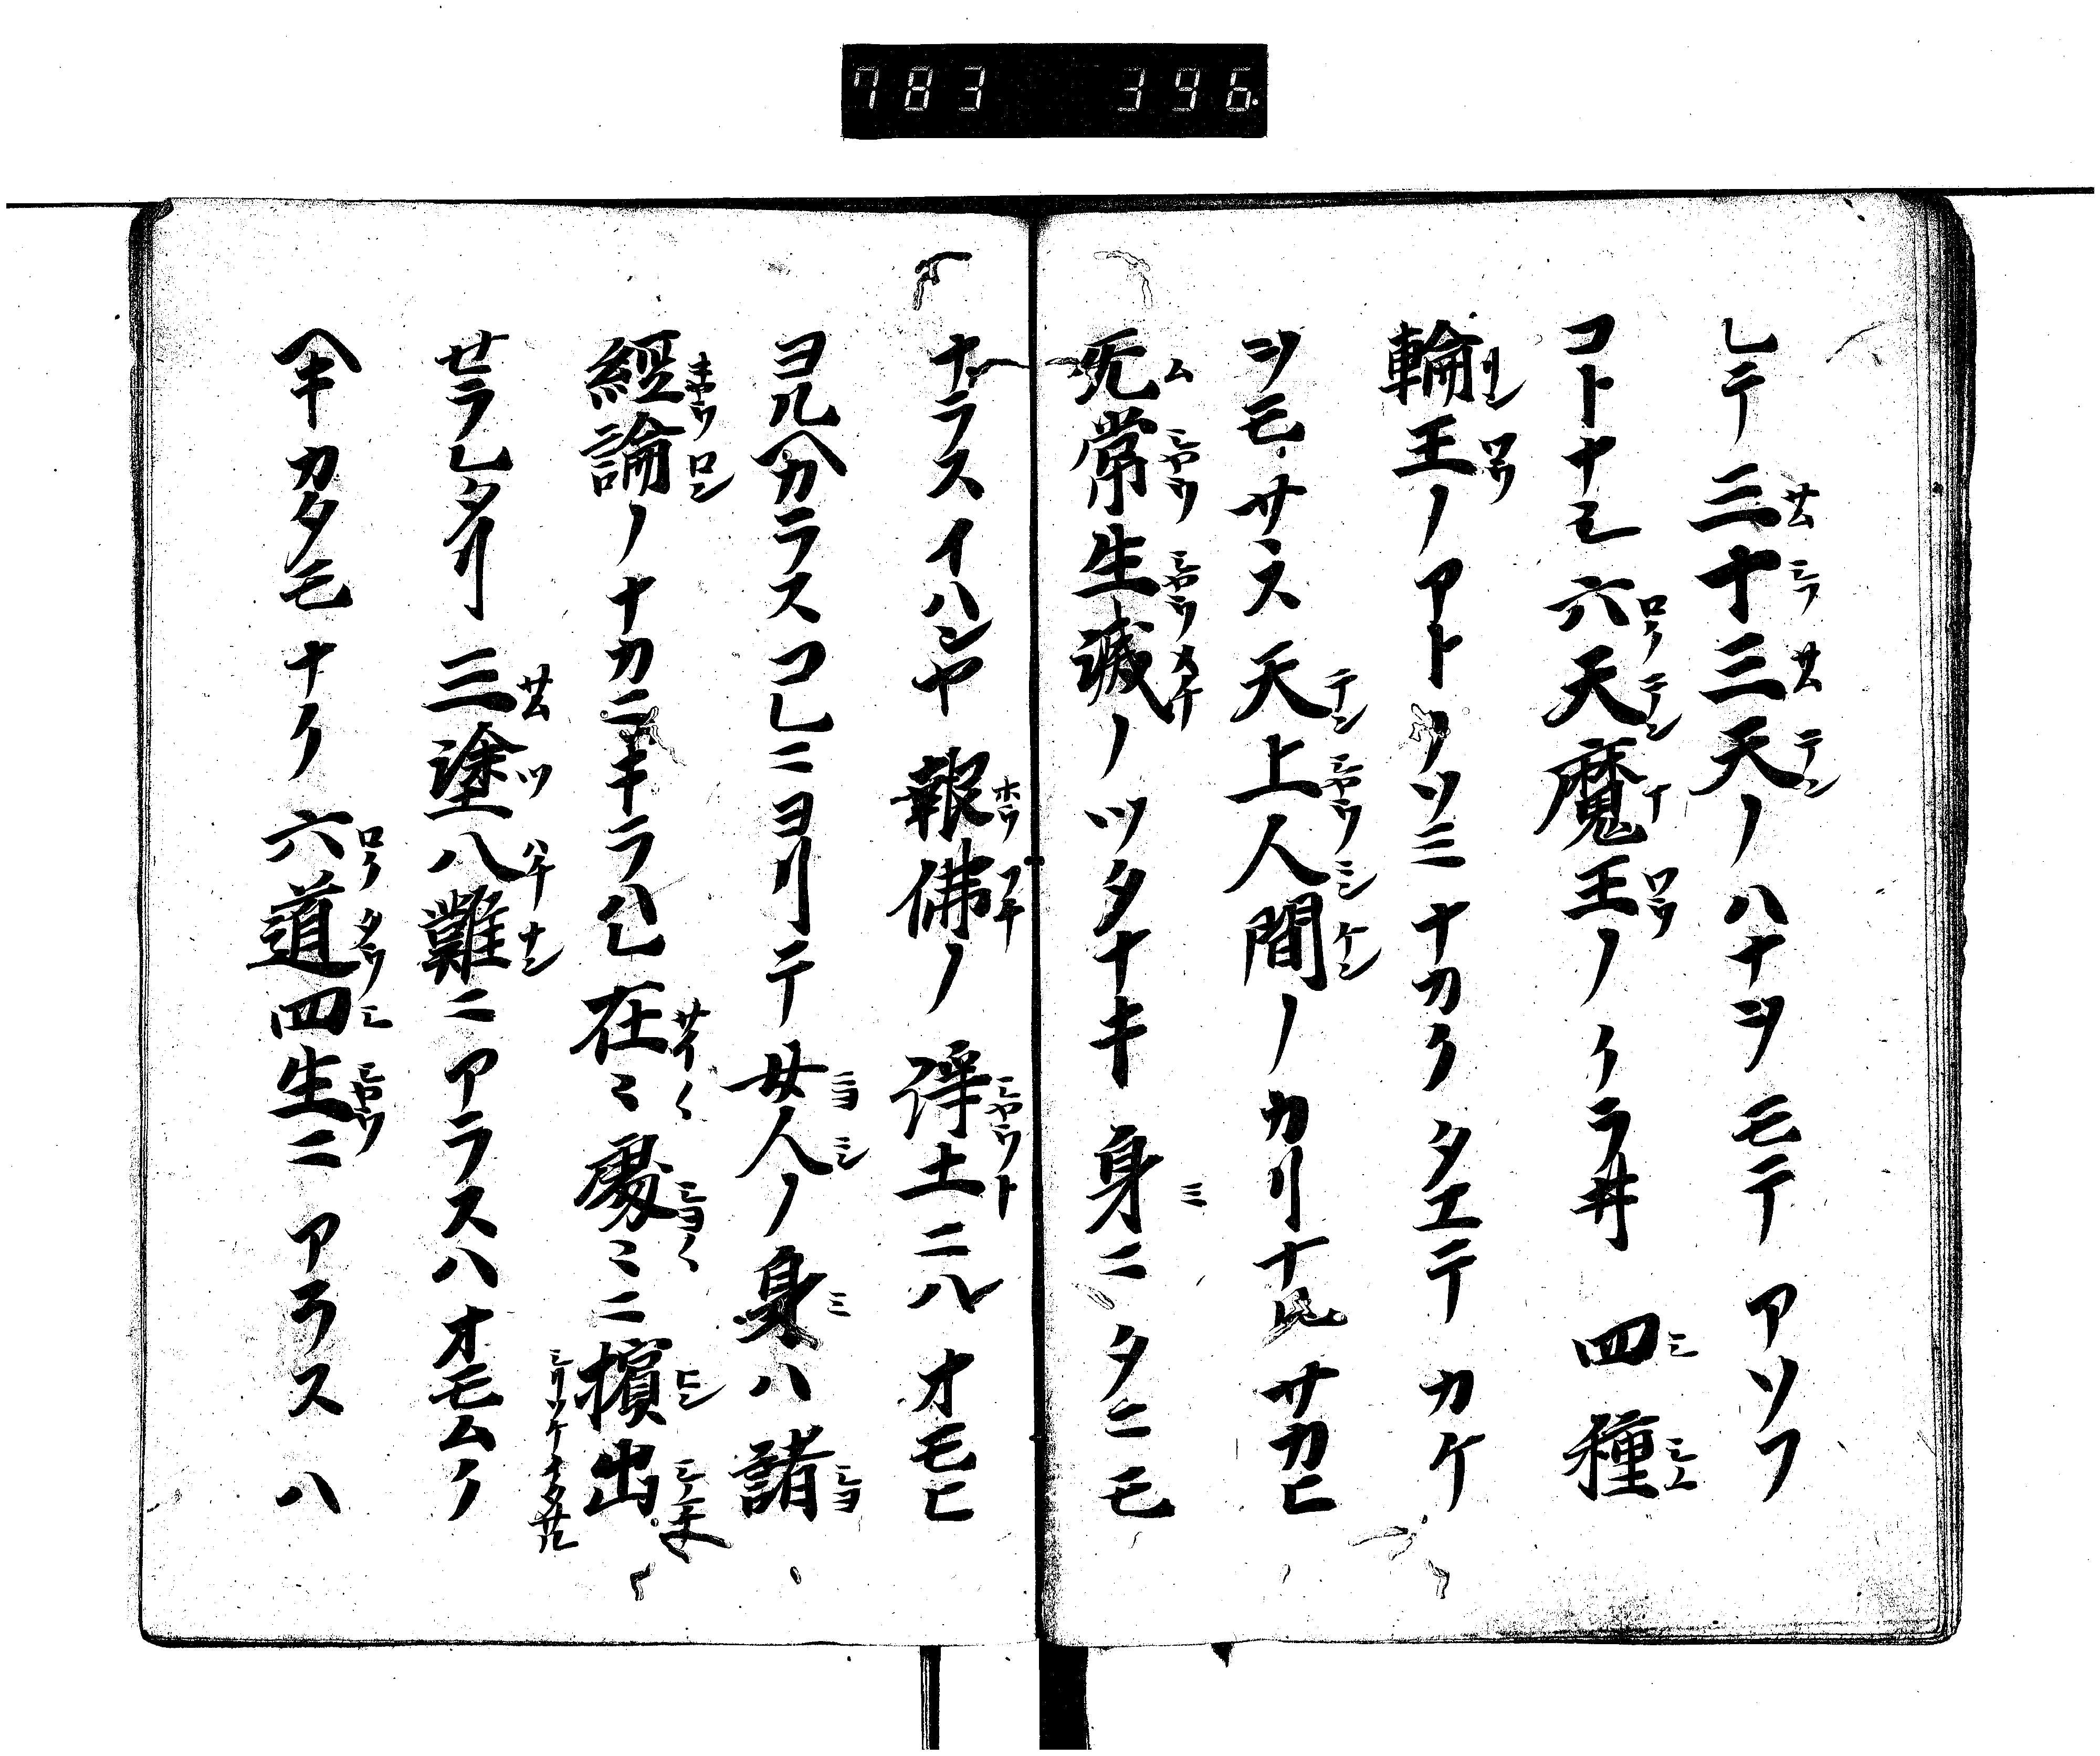 783 396
シテ三十三天ノハナヲモテアソフ
コトナシ六天魔王ノクラヰ四種
輪王ノアトノソミナカクタエテカケ
ヲモサヽス天上人間ノカリナルサカヒ
无常生滅ノツタナキ身ニタニモ
ナラスイハンヤ報佛ノ浄土ニハオモヒ
ヨルヘカラスコレニヨリテ女人ノ身ハ諸
經論ノナカニキラハレ在〻處〻ニ擯出
セラレタリ三塗八難ニアラスハオモムク
ヘキカタモナク六道四生ニアラスハ